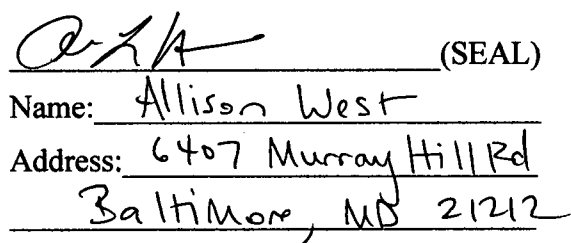 (SEAL)
Name: Allison West
Address: 6407 Murray Hill Rd
Baltimore, MD 21212